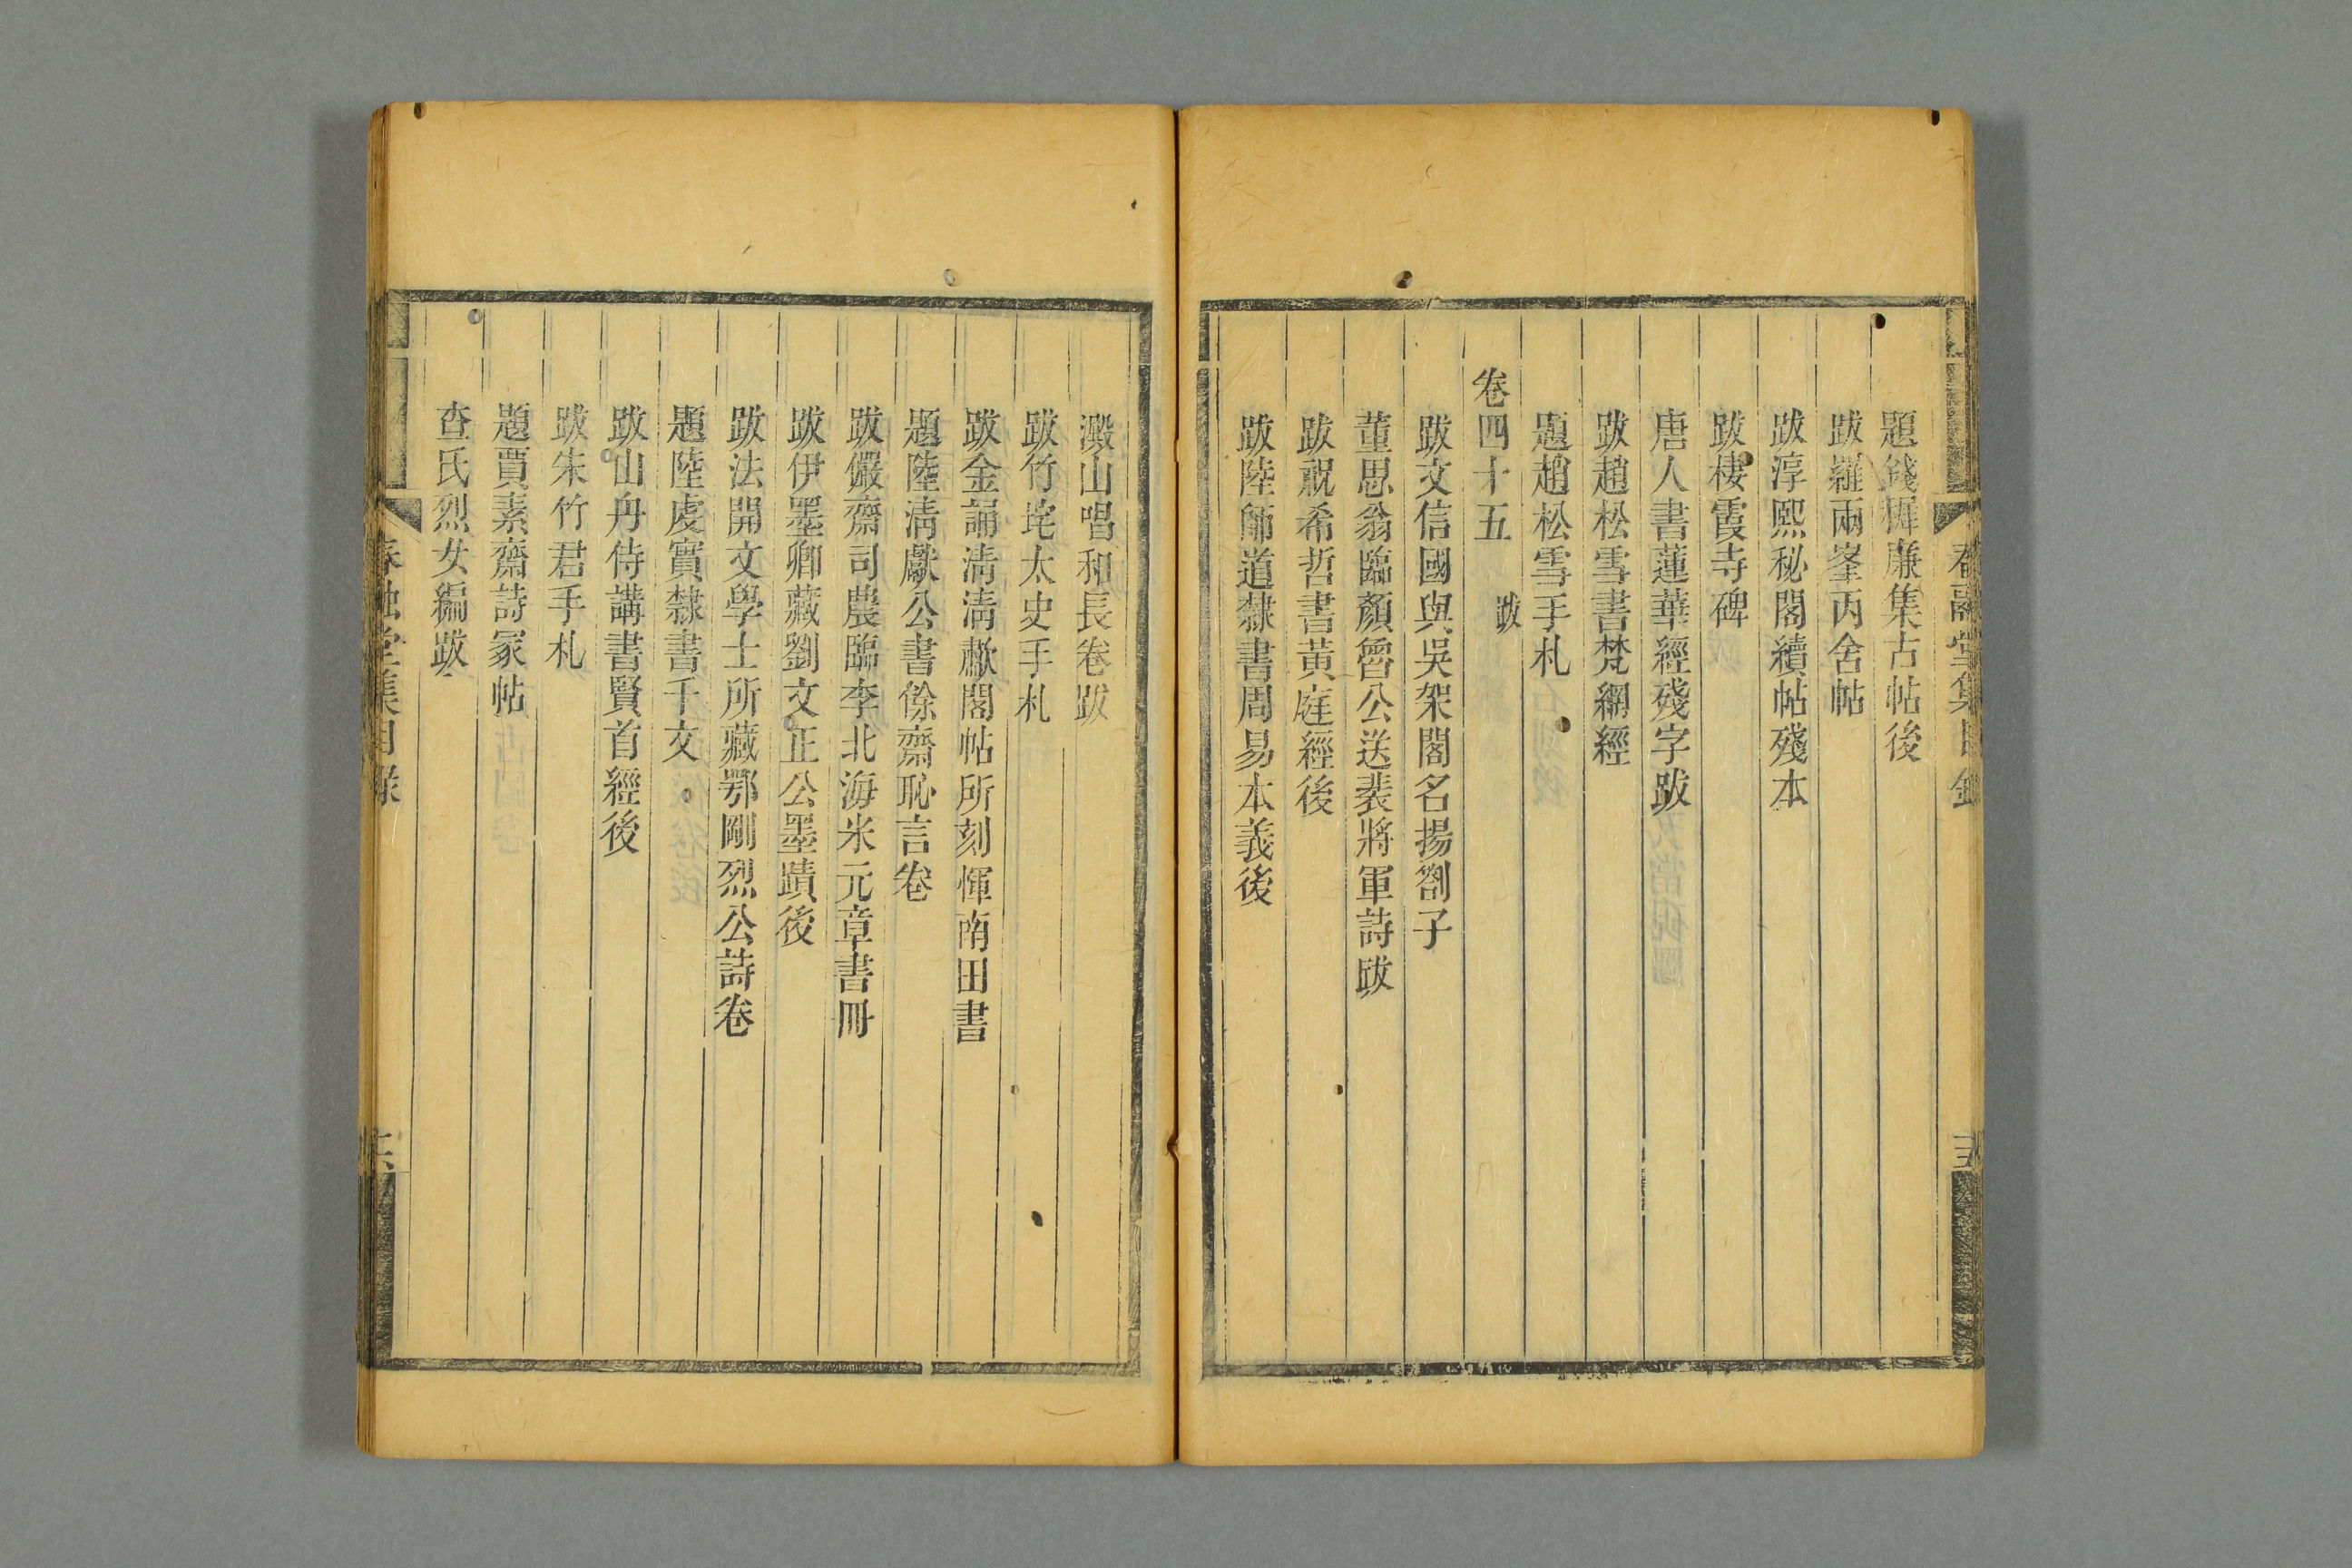 題錢梅廉集古帖後
跋羅兩峯丙舍帖
跋淳熙秘閣續帖殘本
跋棲霞寺碑
唐人書蓮華經殘字跋
跋趙松雪書梵網經
題趙松雪手札
卷四十五　跋
跋文信國與吳架閣名揚劄子
董思翁臨顏魯公送裴將軍詩跋
跋祝希哲書黃庭經後
跋陸師道隸書周易本義後
澱山唱和長卷跋
跋竹垞太史手札
跋金誦淸淸歗閣帖所刻惲南田書
題陸淸獻公書餘齋恥言卷
跋儼齋司農臨李北海米元章書冊
跋伊墨卿藏劉文正公墨蹟後
跋法開文學士所藏鄂剛烈公詩卷
題陸虔實隸書千文
跋山丹侍講書賢首經後
跋朱竹君手札
題賈素齋詩冢帖
查氏烈女編跋
春融堂集目錄